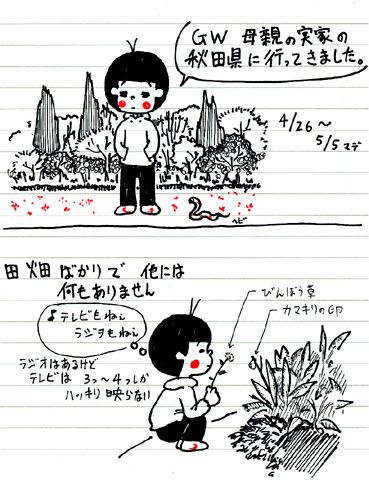 GW 母親の実家の
秋田県に行ってきました。
4/26〜
5/5マデ
ヘビ
田畑ばかりで 他には
何もありません
♪テレビもねぇ
ラジオもねぇ
ラジオはあるけど
テレビは 3つ〜4つしか
ハッキリ映らない
びんぼう草
カマキリの卵